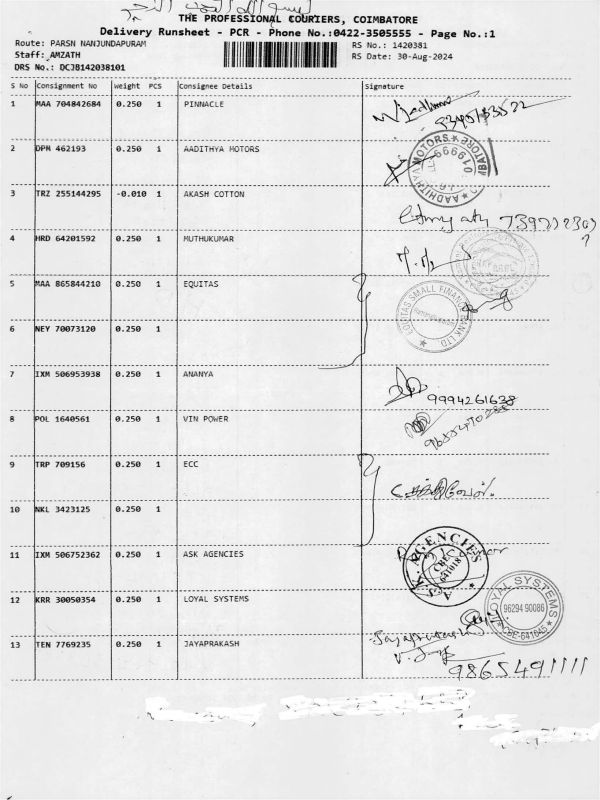 بسم الله الرحمن الرحيم
THE PROFESSIONAL COURIERS, COIMBATORE
Delivery Runsheet - PCR - Phone No.:0422-3505555 - Page No.:1
Route: PARSN NANJUNDAPURAM
RS No.: 1420381
Staff: AMZATH
RS Date: 30-Aug-2024
DRS No.: DCJB142038101
S No Consignment No Weight PCS Consignee Details Signature
1 MAA 704842684 0.250 1 PINNACLE
2 DPM 462193 0.250 1 AADITHYA MOTORS
AADHITHYA MOTORS
3 TRZ 255144295 -0.010 1 AKASH COTTON
4 HRD 64201592 0.250 1 MUTHUKUMAR
5 MAA 865844210 0.250 1 EQUITAS
EQUITAS SMALL FINANCE BANK LTD.
6 NEY 70073120 0.250 1
7 IXM 506953938 0.250 1 ANANYA
9994261638
8 POL 1640561 0.250 1 VIN POWER
9 TRP 709156 0.250 1 ECC
சக்திவேல்.
10 NKL 3423125 0.250 1
11 IXM 506752362 0.250 1 ASK AGENCIES
AGENCIES
CBE
641018
12 KRR 30050354 0.250 1 LOYAL SYSTEMS
LOYAL SYSTEMS
96294 90086
CBE-641045
13 TEN 7769235 0.250 1 JAYAPRAKASH
Jayaprakash
9865491111